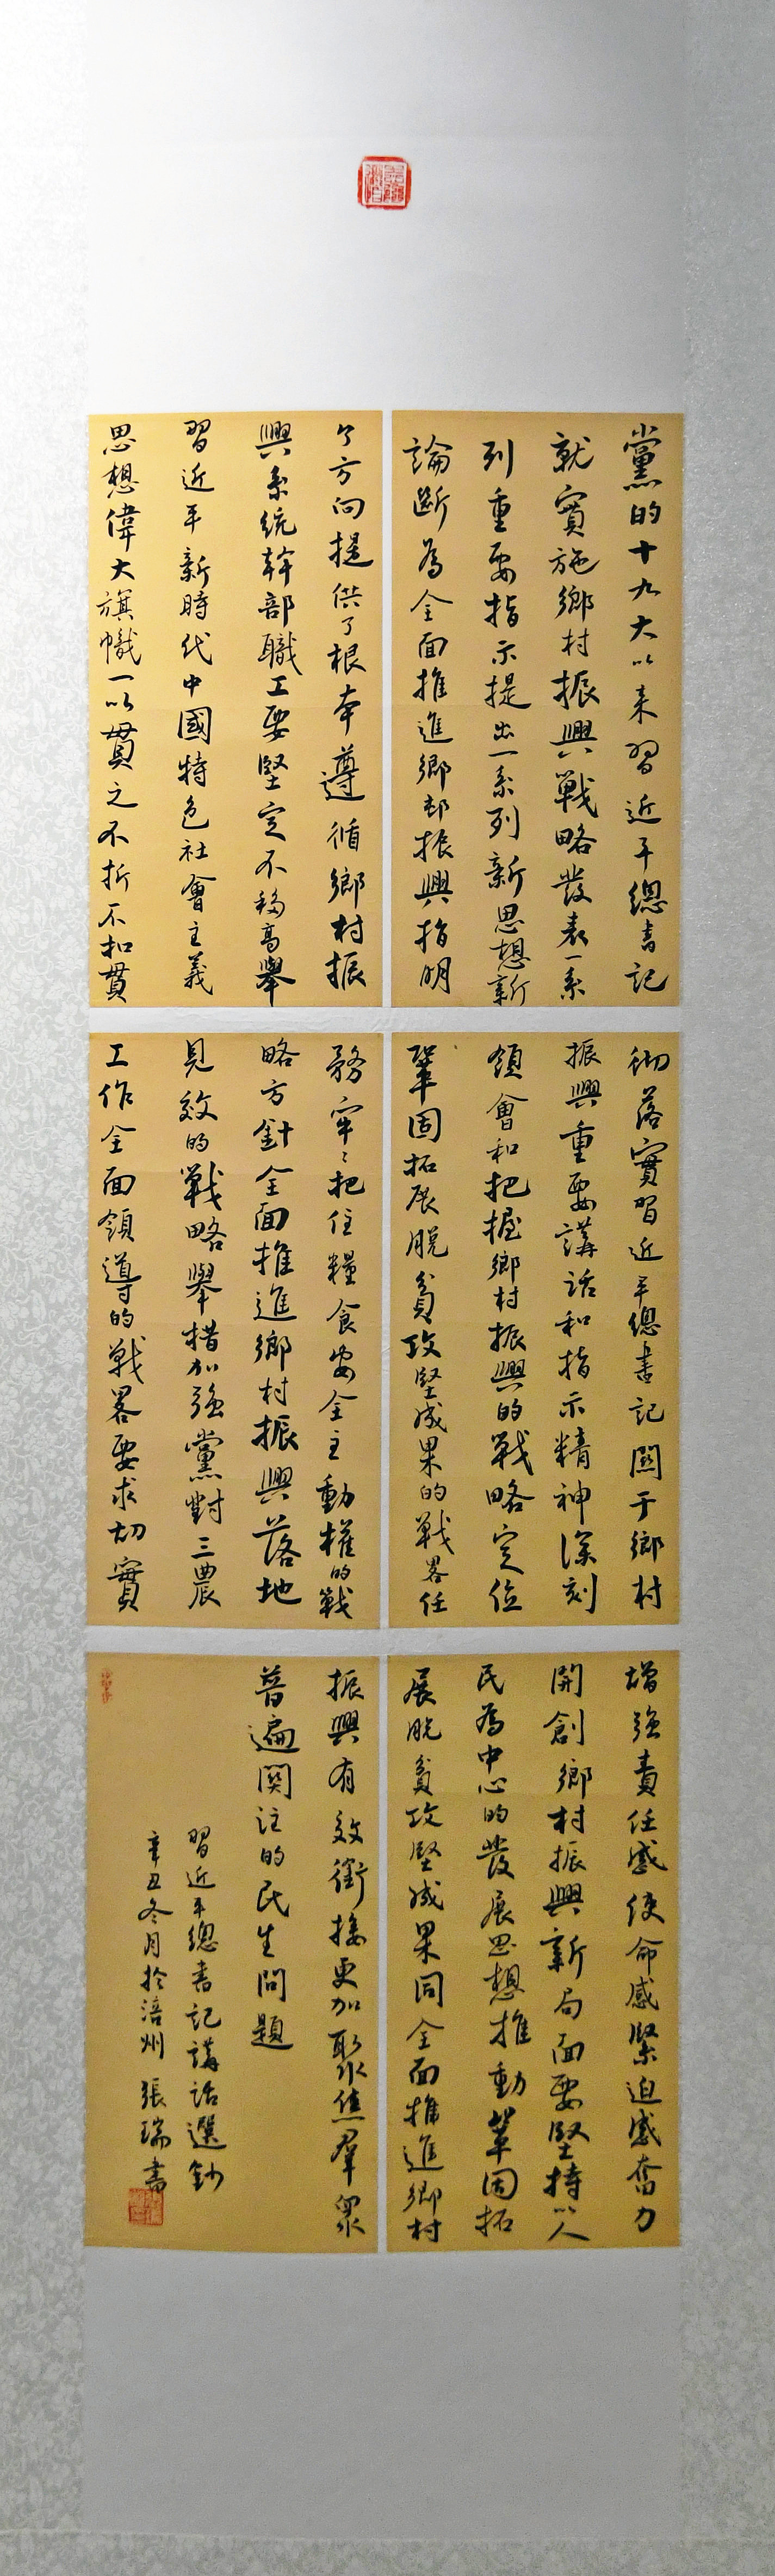 黨的十九大以来習近平總書記
就實施鄉村振興戰略發表一系
列重要指示提出一系列新思想新
論斷為全面推進鄉邨振興指明
了方向提供了根本遵循鄉村振
興系統幹部職工要堅定不移高舉
習近平新時代中國特色社會主義
思想偉大旗幟一以貫之不折不扣貫
彻落實習近平總書記關于鄉村
振興重要講話和指示精神深刻
領會和把握鄉村振興的戰略定位
鞏固拓展脫貧攻堅成果的戰畧任
務牢々把住糧食安全主動權的戰
略方針全面推進鄉村振興落地
見效的戰略舉措加强黨對三農
工作全面領導的戰畧要求切實
增强責任感使命感緊迫感奮力
開創鄉村振興新局面要堅持以人
民為中心的發展思想推動鞏固拓
展脫貧攻堅成果同全面推進鄉村
振興有效銜接更加聚焦羣眾
普遍関注的民生問題
習近平總書記講話選鈔
辛丑冬月於涪州張瑞書